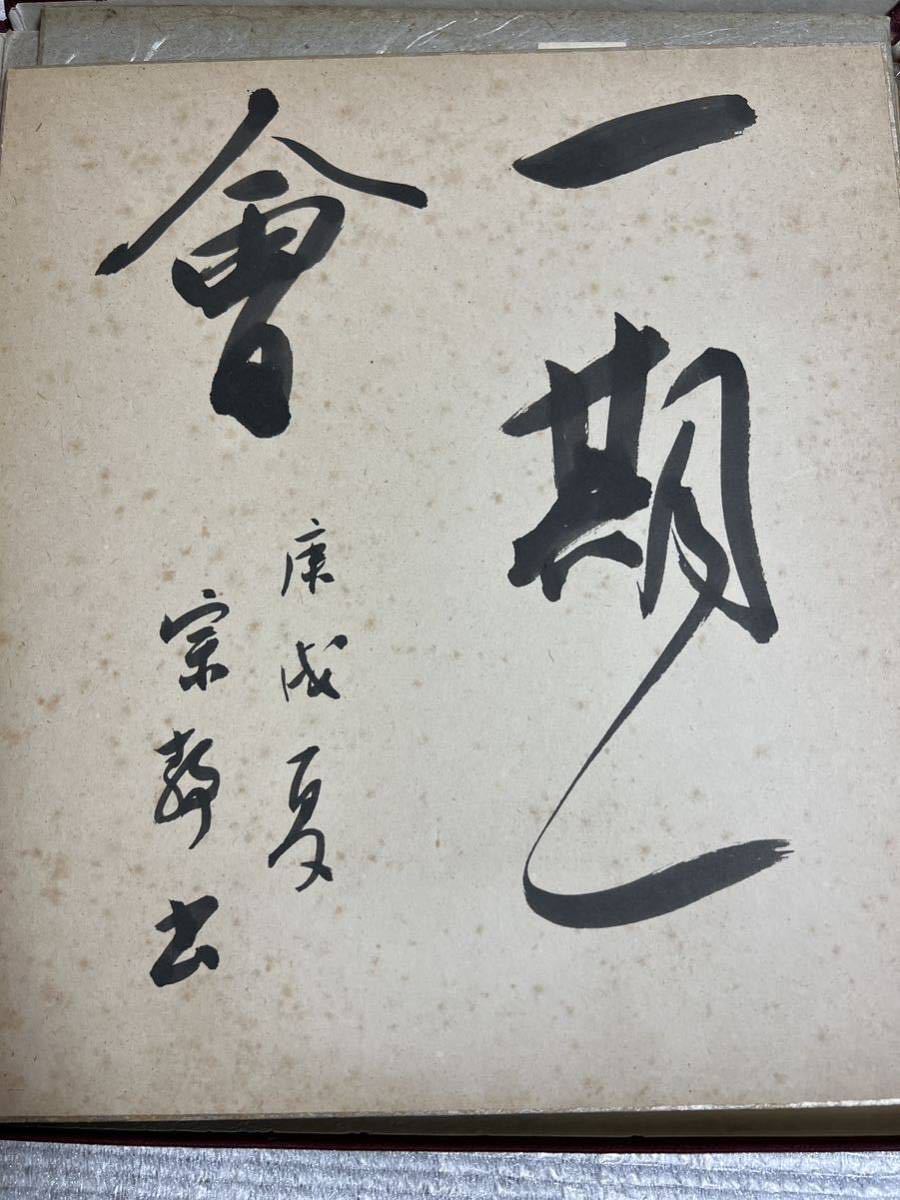 一期一
會
庚戌夏
宗靜書